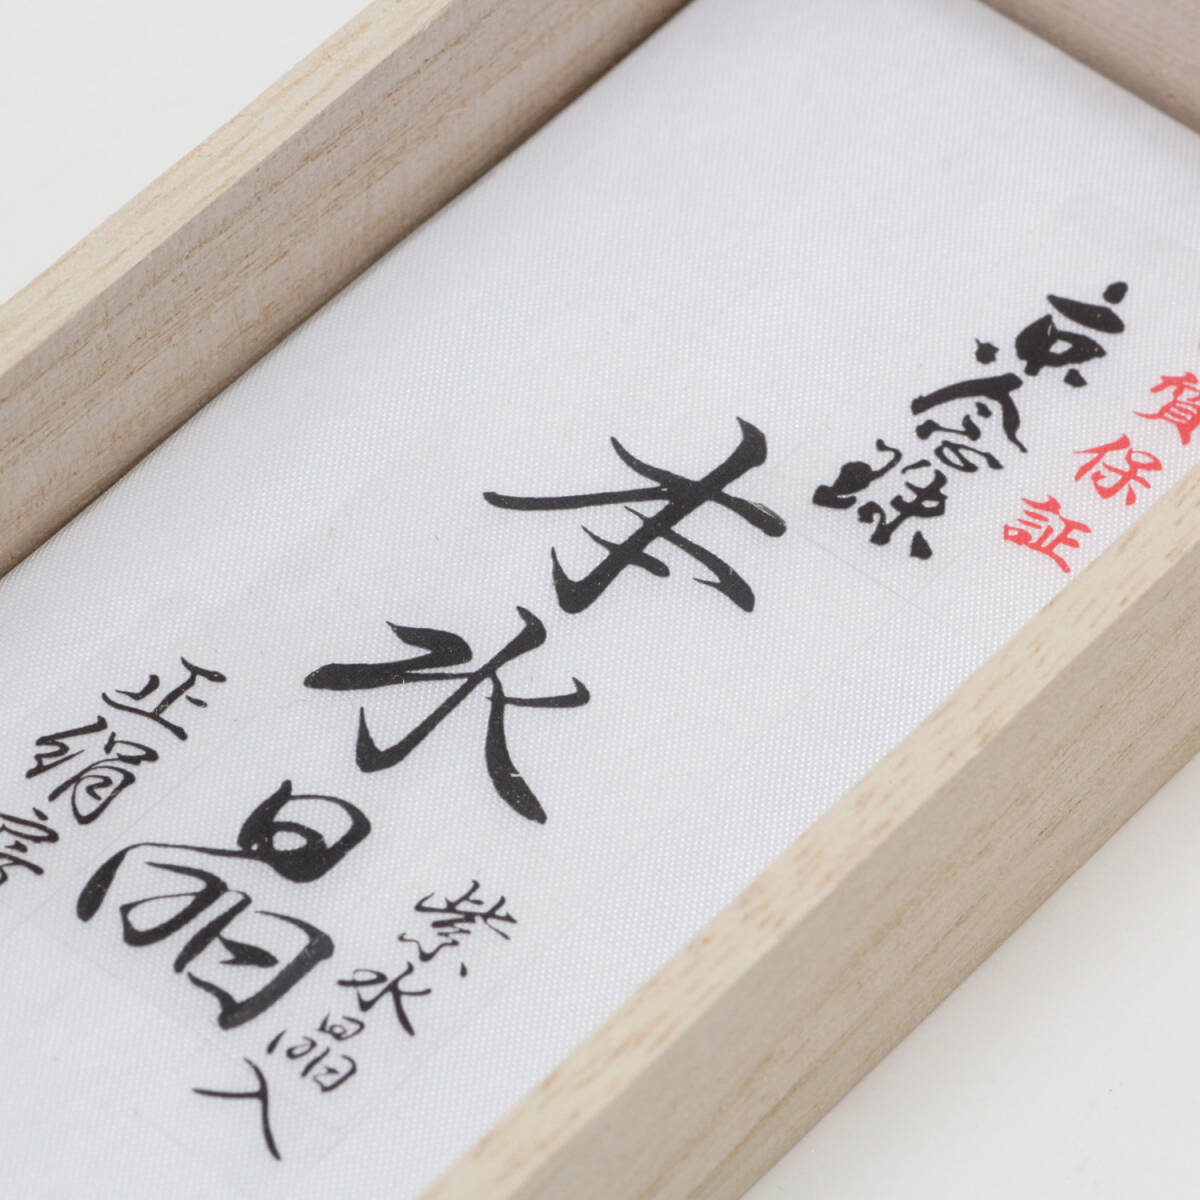 質保証
京念珠
本水晶
紫水晶入
正絹房